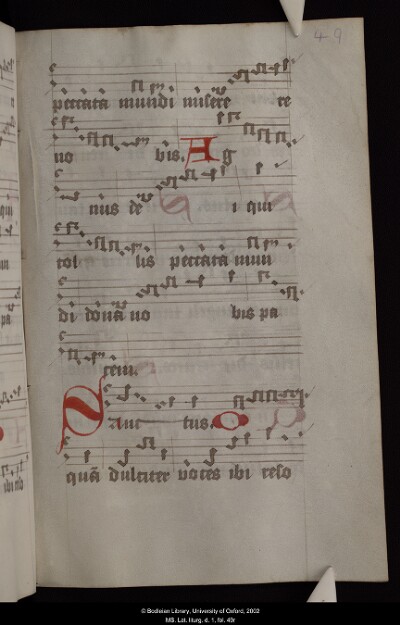 49
peccata mundi misere re
no bis. Ag
nus de i qui
tol lis peccata mun
di dona no bis pa
cem.
Sanc tus. O
quā dulciter voces ibi reso
© Bodleian Library, University of Oxford, 2002
MS. Lat. liturg. d. 1, fol. 49r